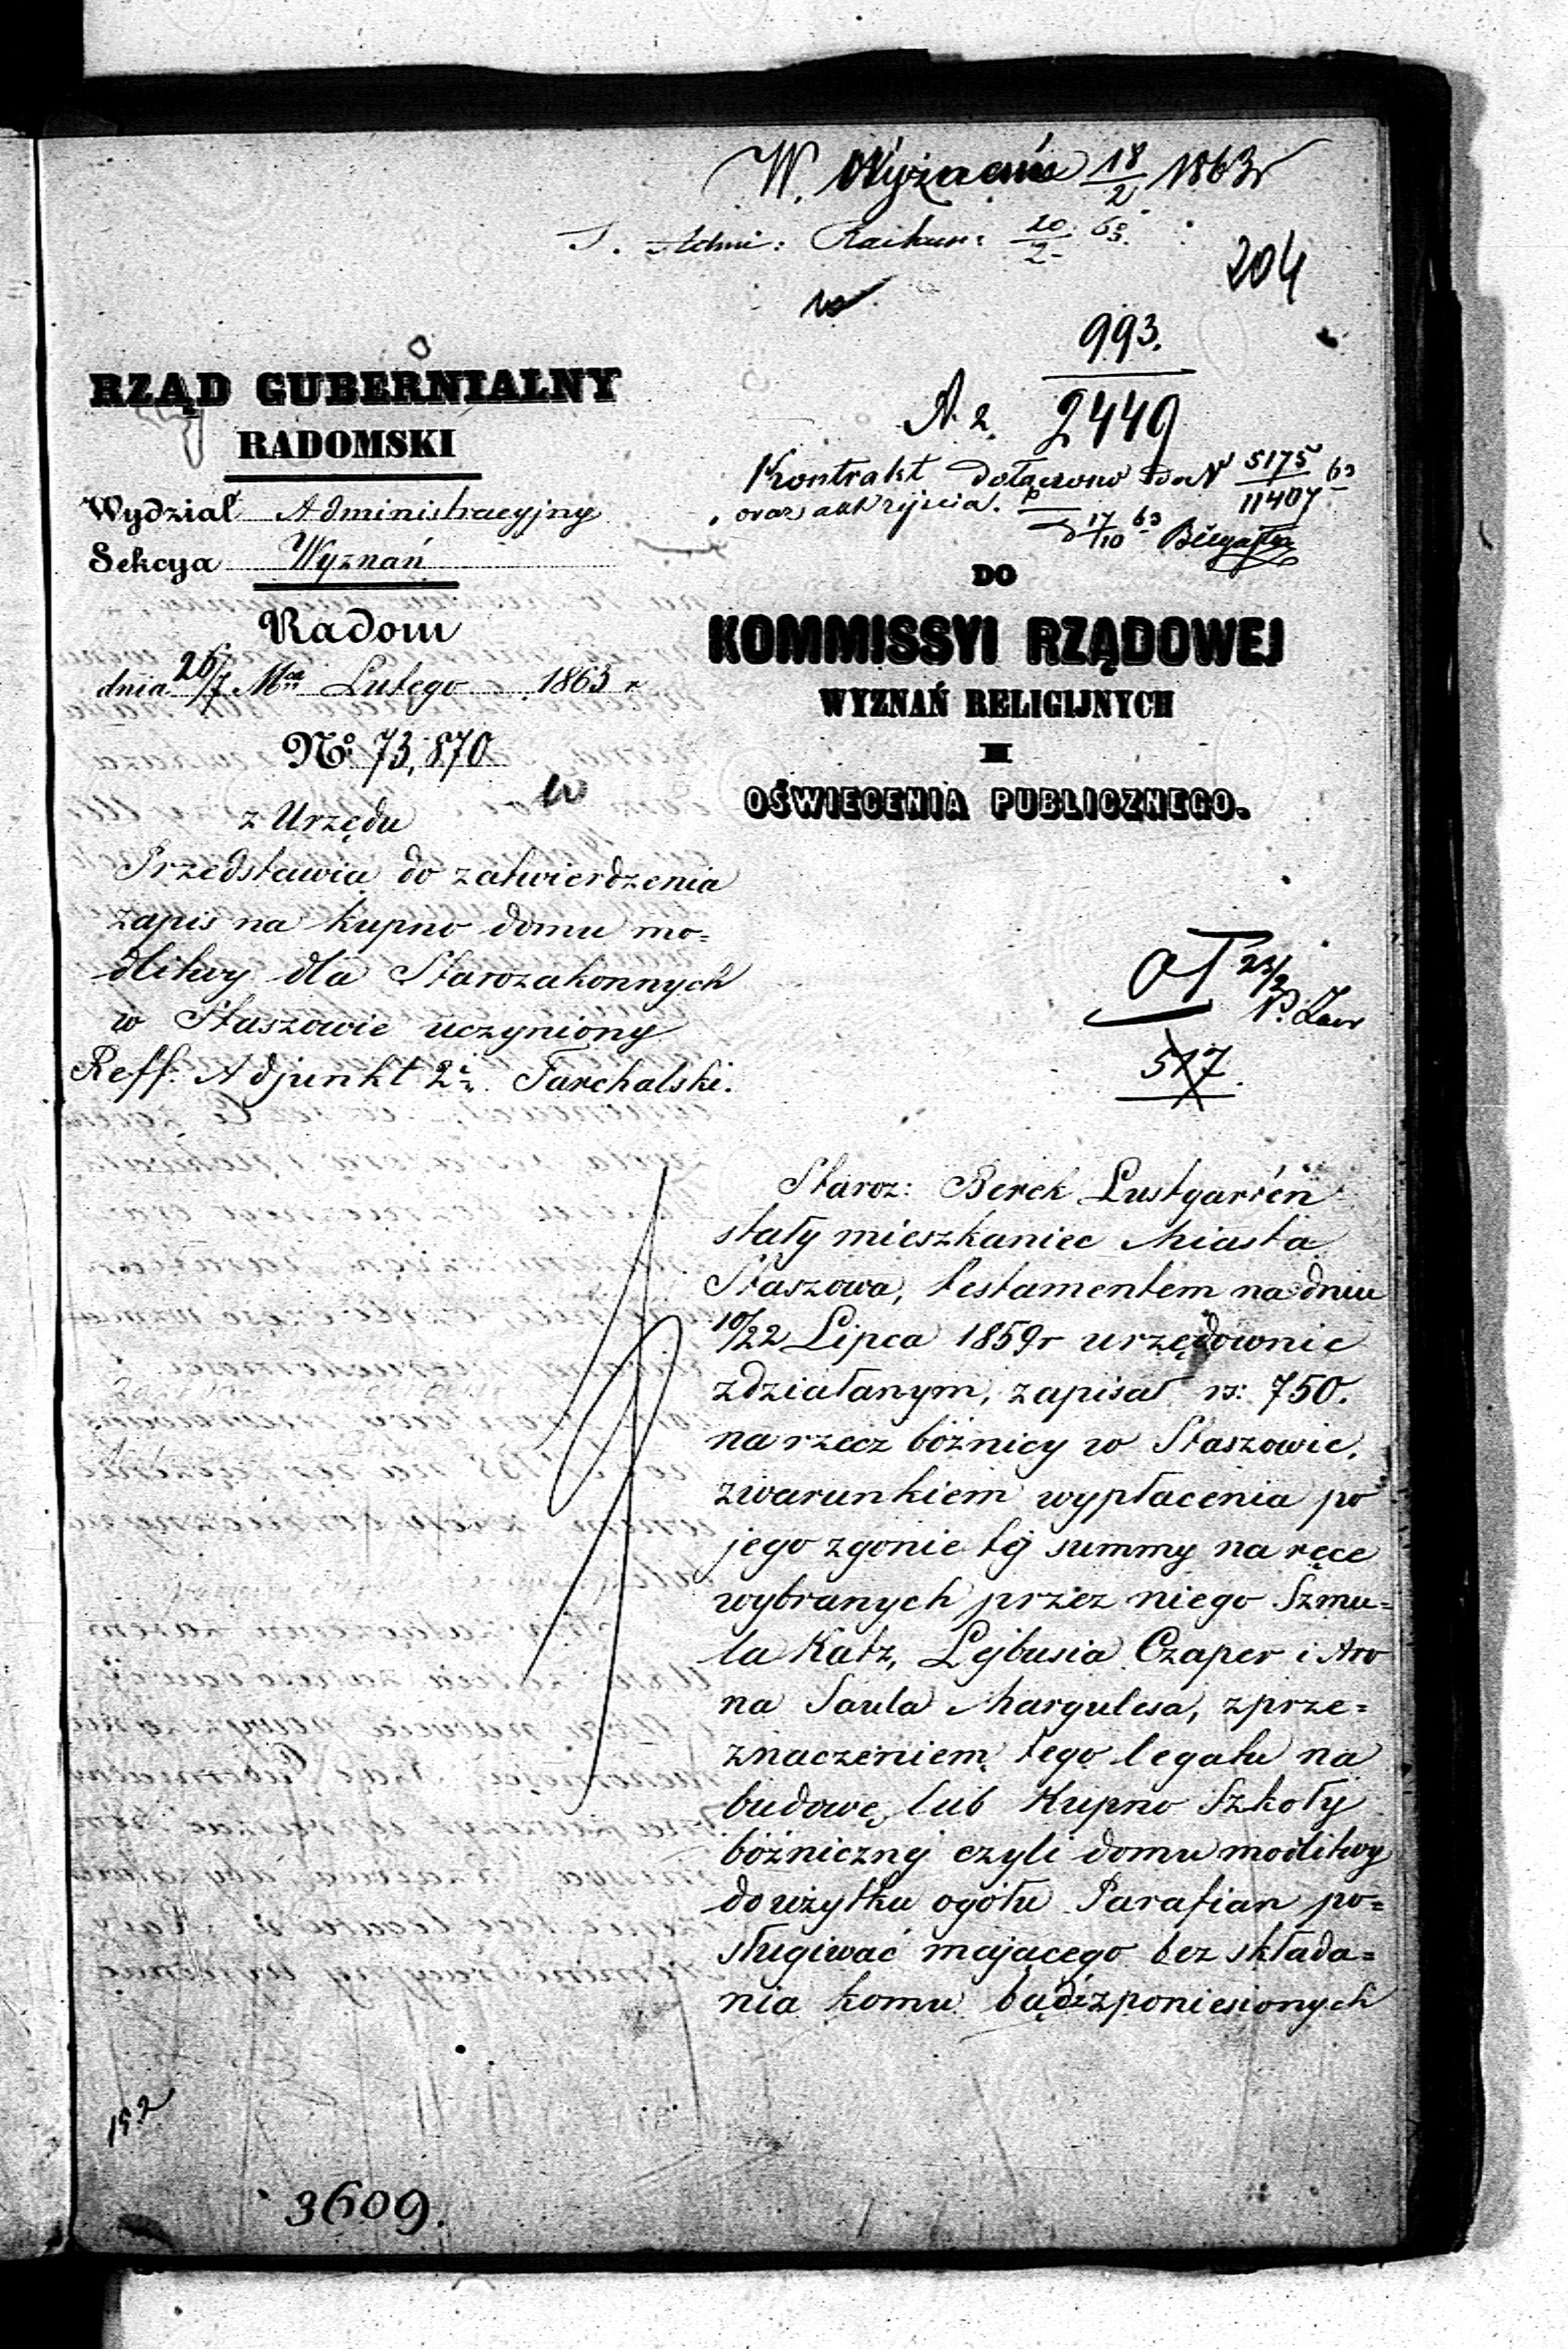 W. Wyznań 18/2 1863r
20/2 63.
204
993.
2449
Kontrakt dołączono do N 5175/11407 63
oraz
17/10 63
RZĄD GUBERNIALNY
RADOMSKI
Wydział Administracyjny
Sekcya Wyznań
Radom
dnia 26/7 Mca Lutego 1863 r
No 73,870
z Urzędu
Przedstawia do zatwierdzenia
zapis na kupno domu mo=
dlitwy dla Starozakonnych
w Staszowie uczyniony
Reff: Adjunkt 2i Tarchalski.
DO
KOMMISSYI RZĄDOWEJ
WYZNAŃ RELIGIJNYCH
I
OŚWIECENIA PUBLICZNEGO.
23/2
517.
Staroz: Berek Lustgarten
stały mieszkaniec Miasta
Staszowa, testamentem na dniu
10/22 Lipca 1859r urzędownie
zdziałanym, zapisał rs: 750.
na rzecz bóżnicy w Staszowie,
zwarunkiem wypłacenia po
jego zgonie téj summy na ręce
wybranych przez niego Szmu=
la Katz, Lejbusia Czaper i Aro
na Saula Margulesa, zprze=
znaczeniem tego legatu na
budowę lub kupno Szkoły
bóżnicznéj czyli domu modlitwy
do użytku ogółu Parafian po=
sługiwać mającego bez składa=
nia komu bądź zponiesionych
15.2
3609.